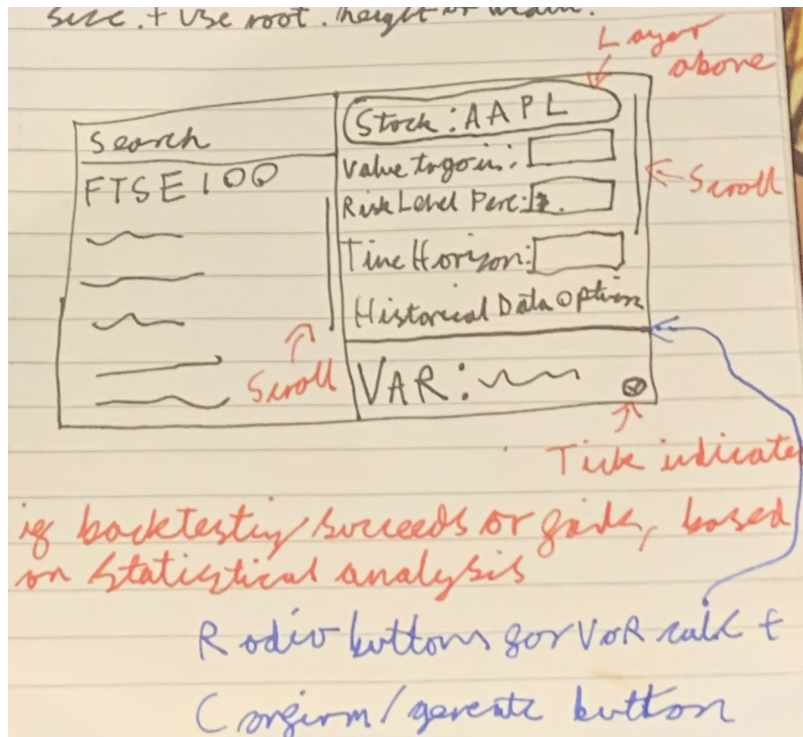 size. + Use root. height or width.
Layer
above
Search
Stock: AAPL
FTSE100
Value to go in:
Scroll
Risk Level Perc:
Time Horizon:
Historical Data Option
Scroll
VAR:
Tick indicates
if backtesting succeeds or fails, based
on statistical analysis
Radio buttons for VaR calc +
Confirm/generate button